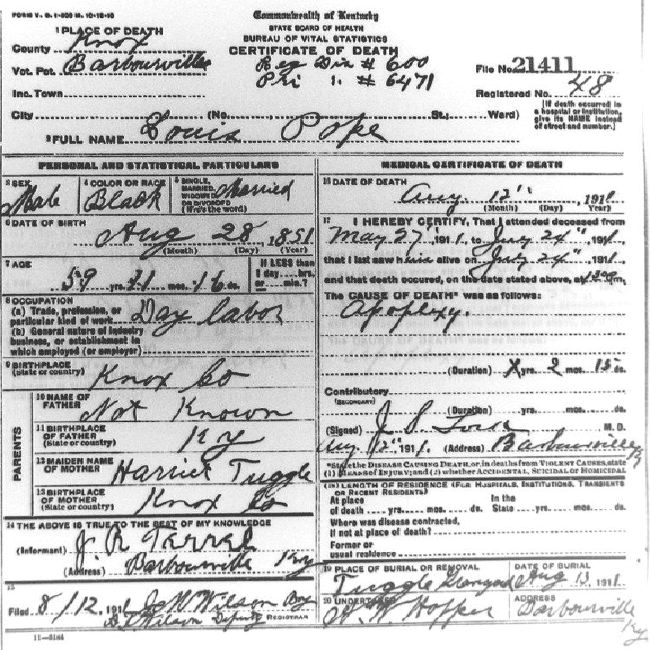 FORM V. S. 1-
Commonwealth of Kentucky
STATE BOARD OF HEALTH
BUREAU OF VITAL STATISTICS
CERTIFICATE OF DEATH
1 PLACE OF DEATH
County Knox
Vot. Pct. Barbourville
Reg Dis # 600
Pri 1. # 6471
File No. 21411
Inc. Town
Registered No. 48
City (No. St.; Ward)
(If death occurred in a hospital or institution, give its NAME instead of street and number.)
2 FULL NAME Louis Pope
PERSONAL AND STATISTICAL PARTICULARS
3 SEX Male
4 COLOR OR RACE Black
5 SINGLE, MARRIED, WIDOWED OR DIVORCED (Write the word) Married
6 DATE OF BIRTH Aug 28 1851
(Month) (Day) (Year)
7 AGE 59 yrs. 11 mos. 16 ds.
If LESS than 1 day....hrs. or....min.?
8 OCCUPATION
(a) Trade, profession, or particular kind of work Day labor
(b) General nature of industry business, or establishment in which employed (or employer)
9 BIRTHPLACE
(State or country) Knox Co
PARENTS
10 NAME OF FATHER Not Known
11 BIRTHPLACE OF FATHER
(State or country) Ky
12 MAIDEN NAME OF MOTHER Harriet Tuggle
13 BIRTHPLACE OF MOTHER
(State or country) Knox Co
14 THE ABOVE IS TRUE TO THE BEST OF MY KNOWLEDGE
(Informant) J. R
(Address) Barbourville Ky
15
Filed 8/12, 191 Wilson
Wilson Deputy REGISTRAR
11-3184
MEDICAL CERTIFICATE OF DEATH
16 DATE OF DEATH Aug 12" 191
(Month) (Day) Year
17 I HEREBY CERTIFY, That I attended deceased from
May 27", 1911, to July 24", 191
that I last saw him alive on July 24", 191
and that death occured, on the date stated above, at
The CAUSE OF DEATH* was as follows:
Apoplexy.
(Duration) X yrs. 2 mos. 15 ds.
Contributory
(SECONDARY)
(Duration) yrs. mos. ds.
(Signed) J. S. M.D.
Aug 12" 1911. (Address) Barbourville Ky
*State the DISEASE CAUSING DEATH, or, in deaths from VIOLENT CAUSES, state (1) MEANS OF INJURY; and (2) whether ACCIDENTAL, SUICIDAL OR HOMICIDAL
18 LENGTH OF RESIDENCE (FOR HOSPITALS, INSTITUTIONS, TRANSIENTS OR RECENT RESIDENTS)
At place of death yrs. mos. ds. In the State yrs. mos. ds.
Where was disease contracted,
If not at place of death?
Former or usual residence
19 PLACE OF BURIAL OR REMOVAL
Tuggle
DATE OF BURIAL
Aug 13, 1911
20 UNDERTAKER
W. Hopper
ADDRESS
Barbourville Ky